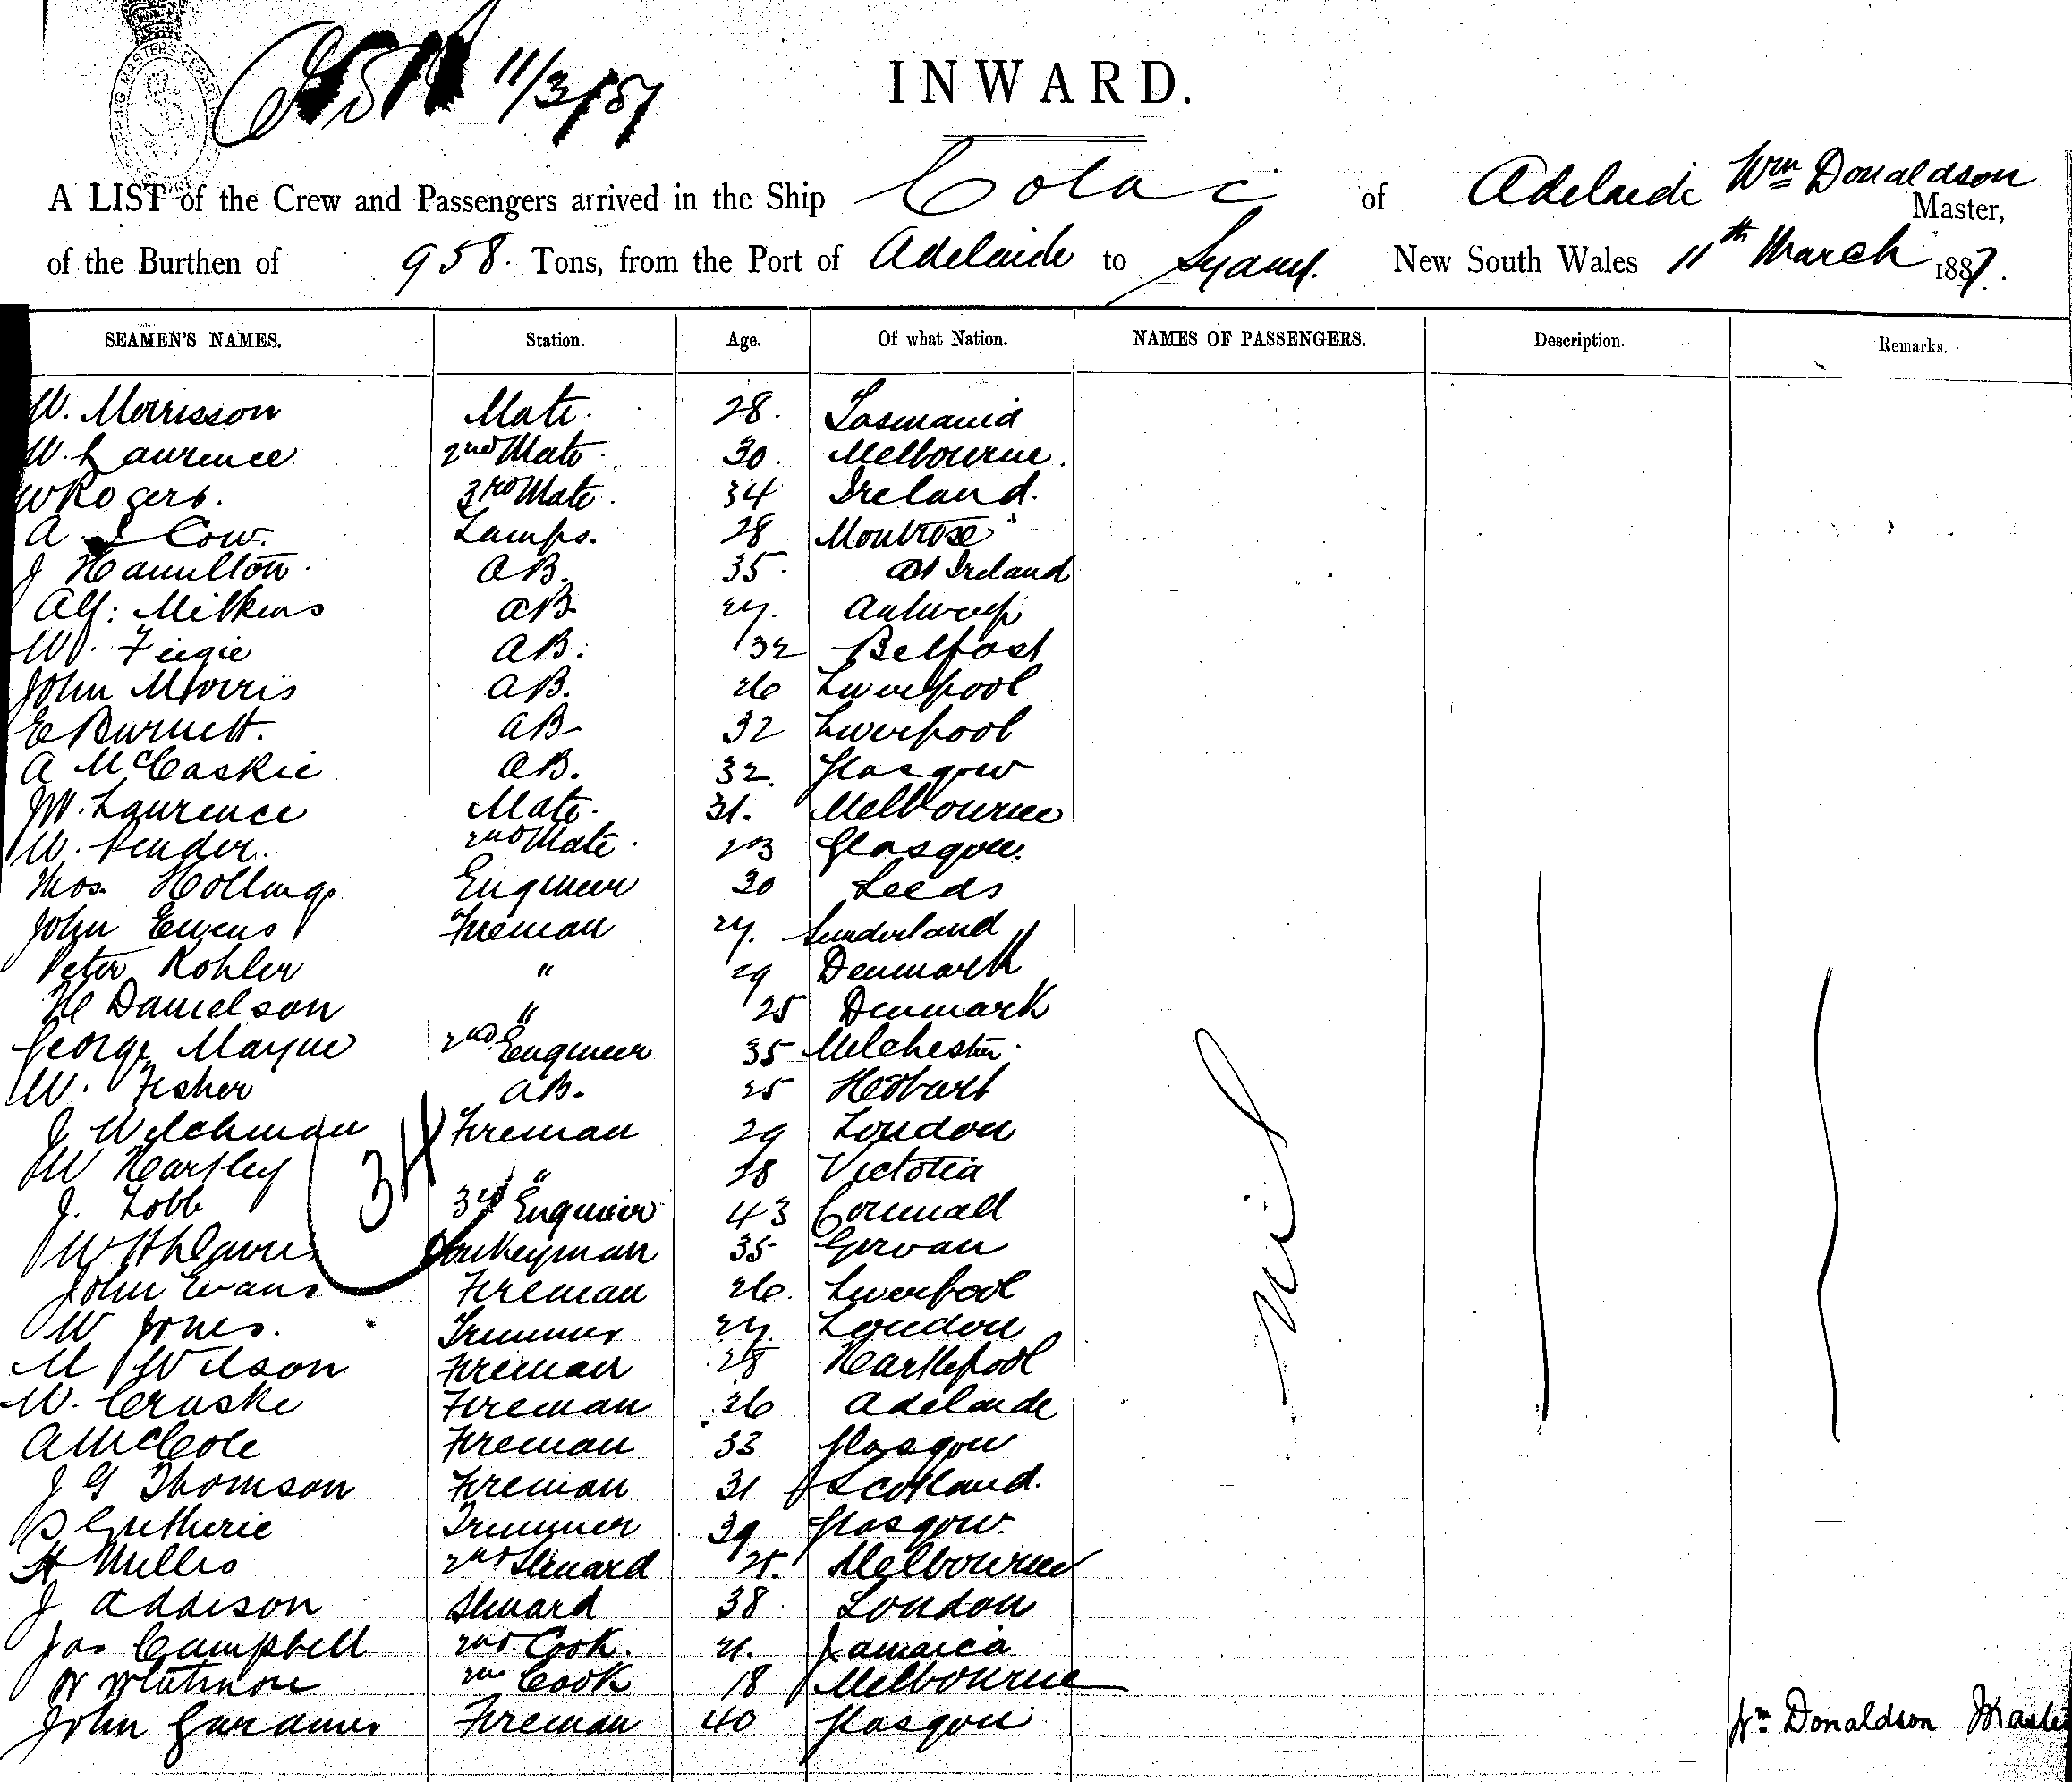 11/3/87
INWARD.
A LIST of the Crew and Passengers arrived in the Ship Colac of Adelaide Wm Donaldson Master,
of the Burthen of 958. Tons, from the Port of Adelaide to Sydney. New South Wales 11th March 1887.
SEAMEN'S NAMES. Station. Age. Of what Nation. NAMES OF PASSENGERS. Description. Remarks.
W. Morrisson Mate. 28. Tasmania
W. Laurence 2nd Mate. 30. Melbourne.
W Rogers. 3rd Mate. 34 Ireland.
A Cow. Lamps. 28 Montrose
J Hamilton. AB. 35. Ireland
Alf: Milkens AB 27. Antwerp
W. Feigie AB. 32 Belfast
John Morris AB. 26 Liverpool
E Burnett. AB 32 Liverpool
A McCaskie AB. 32. Glasgow
W. Laurence Mate. 31. Melbourne
W. Pender. 2nd Mate. 23 Glasgow.
Thos. Hollings Engineer 30 Leeds
John Ewens Fireman 27. Sunderland
Peter Kohler " 29 Denmark
H Danielson " 25 Denmark
George Mayne 2nd Engineer 35 Melchester.
W. Fisher AB. 25 Hobart
J Welchman Fireman 29 London
W Hartley " 28 Victoria
J. Lobb 3rd Engineer 43 Cornwall
34
Donkeyman 35 Girvan
John Evans Fireman 26. Liverpool
W Jones. Trimmer 27. London
M Wilson Fireman 28 Hartlepool
W. Craske Fireman 26 Adelaide
A McCole Fireman 33 Glasgow
J G Thomson Fireman 31 Scotland.
Gutherie Trimmer 39 Glasgow.
Nil
H Mills 2nd Steward 25. Melbourne
J Addison Steward 38 London
Jas Campbell 2nd Cook. 21. Jamaica
Cook 18 Melbourne
John Gardiner Fireman 40 Glasgow
Wm Donaldson Master